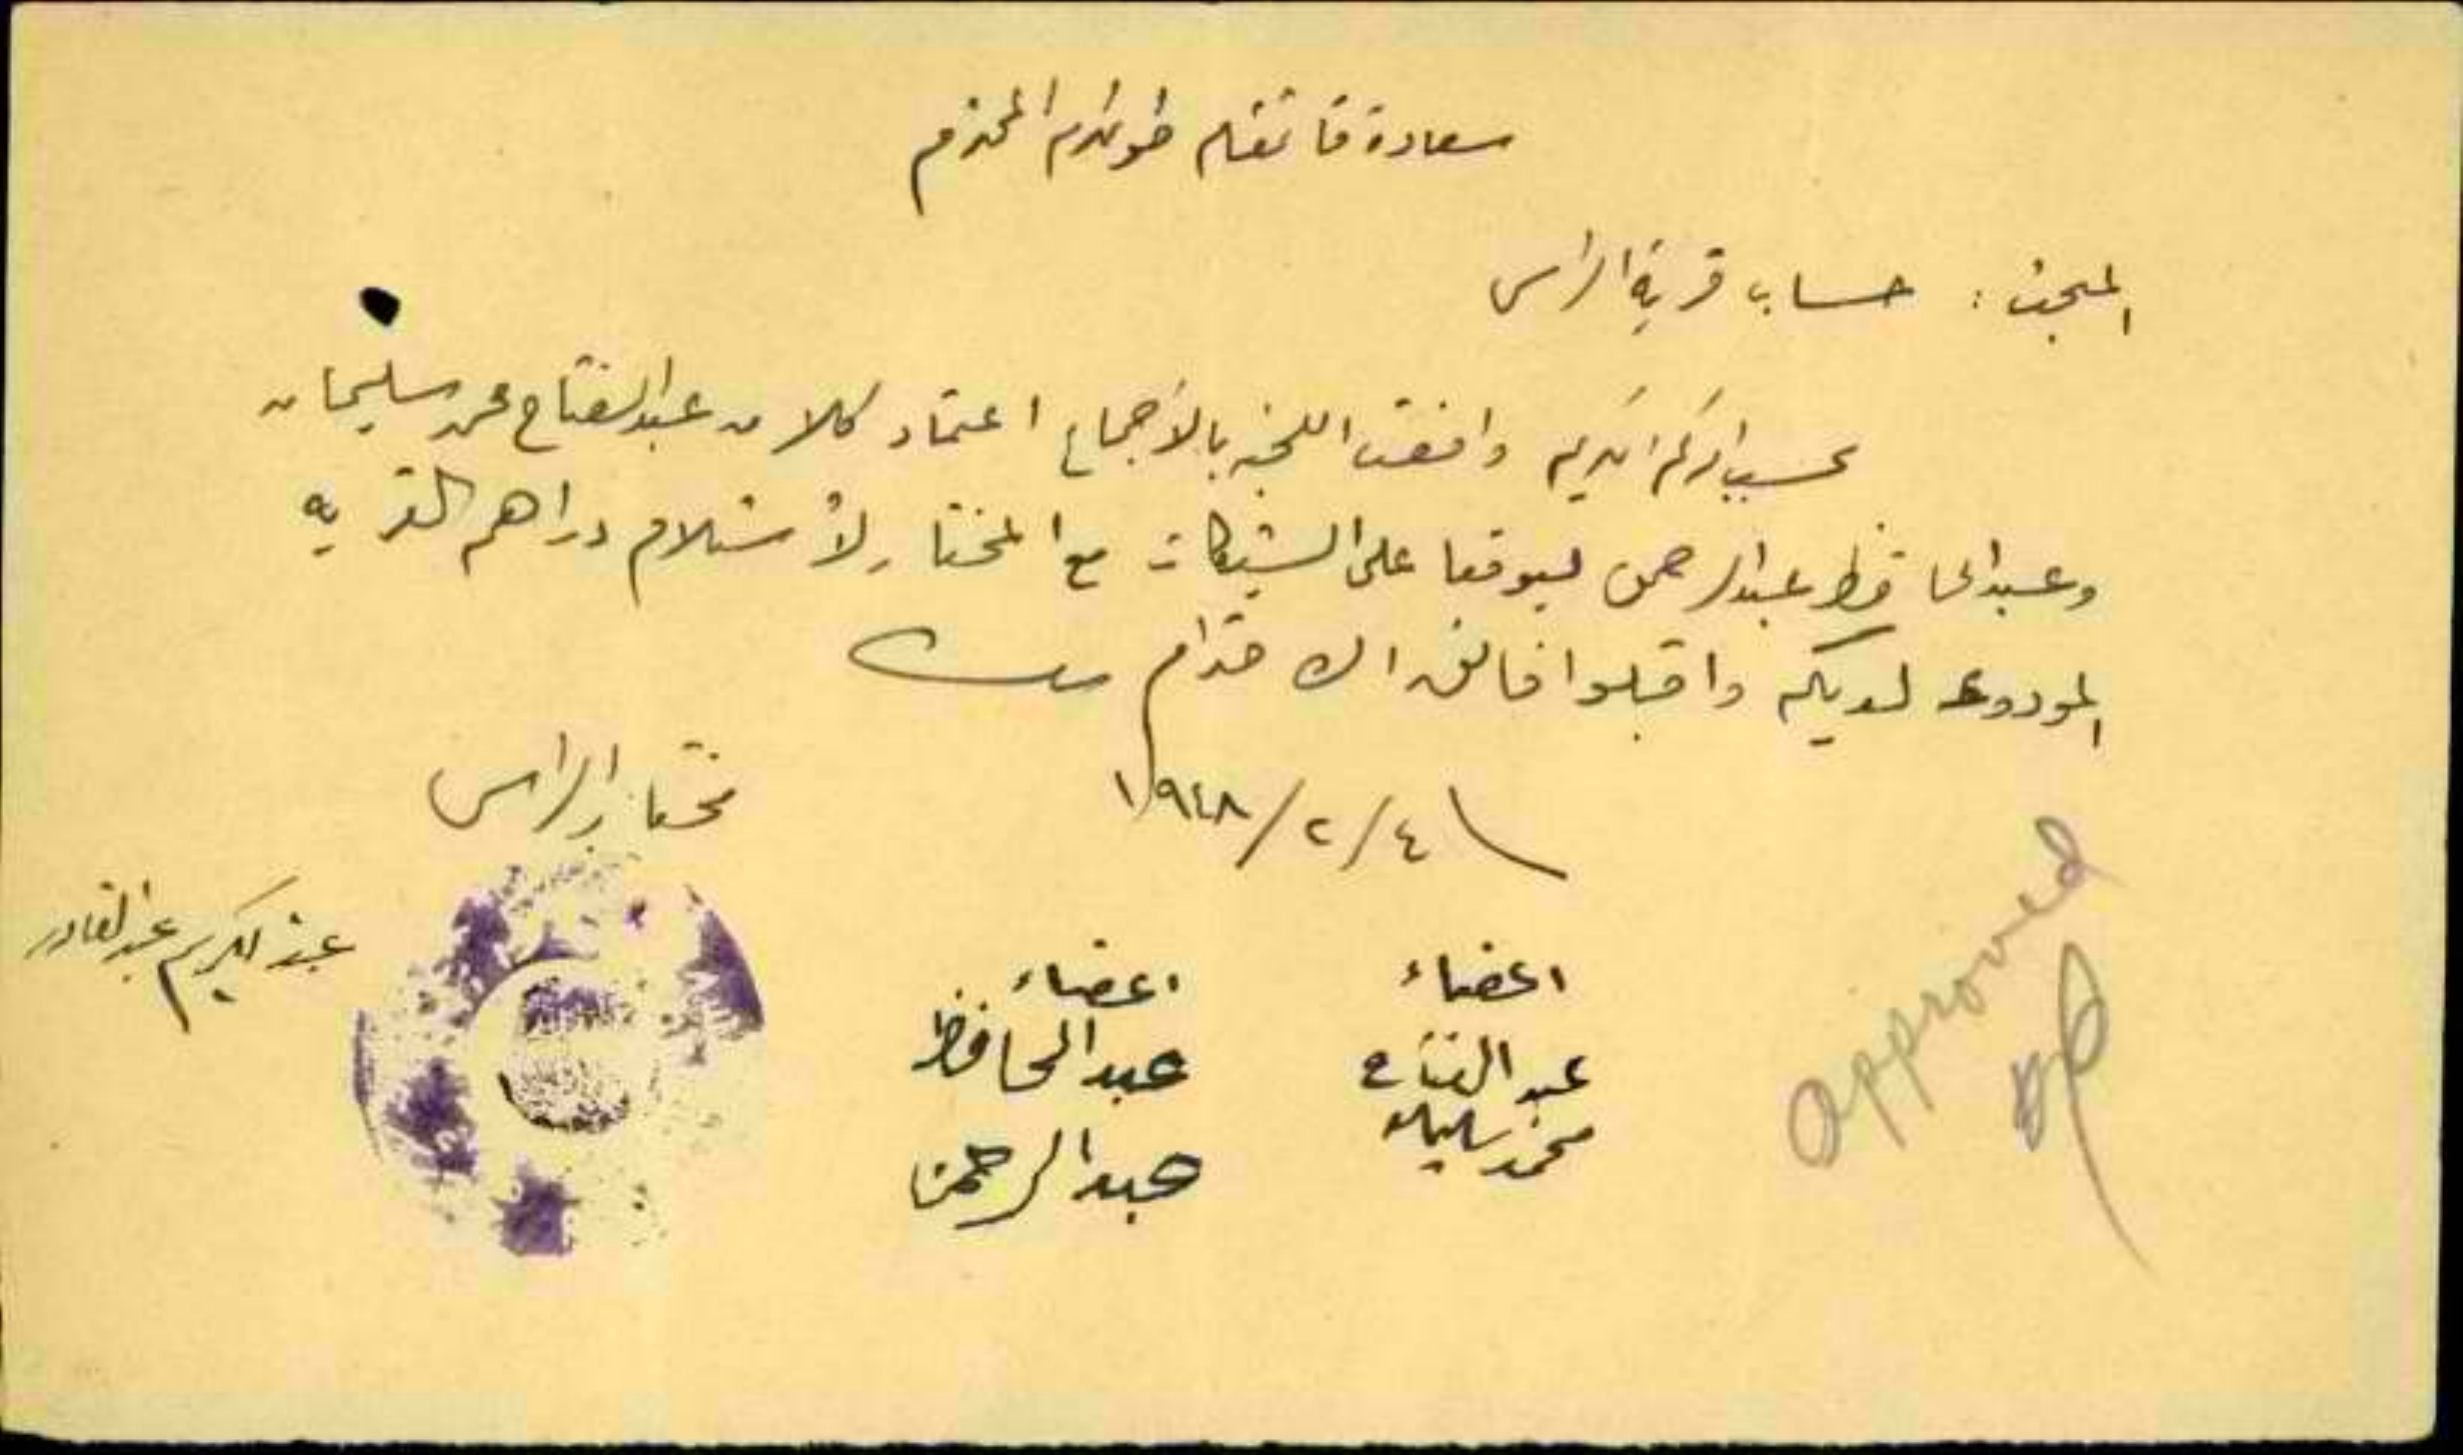 سعادة قائمقام طولكرم المحترم
المبحث : حساب قرية الراس
بحسب امركم الكريم وافقت اللجنه بالأجماع اعتماد كلا من عبد الفتاح محمد سليمان
وعبد الحافظ عبد الرحمن ليوقعا على الشيكات مع المختار لأستلام دراهم القريه
المودوعه لديكم واقبلوا فائق الاحترام
٤/٢/١٩٤٨
مختار الراس
عبد الكريم عبد القادر
اعضاء
عبد الفتاح
محمد سليمان
اعضاء
عبد الحافظ
عبد الرحمن
Approved